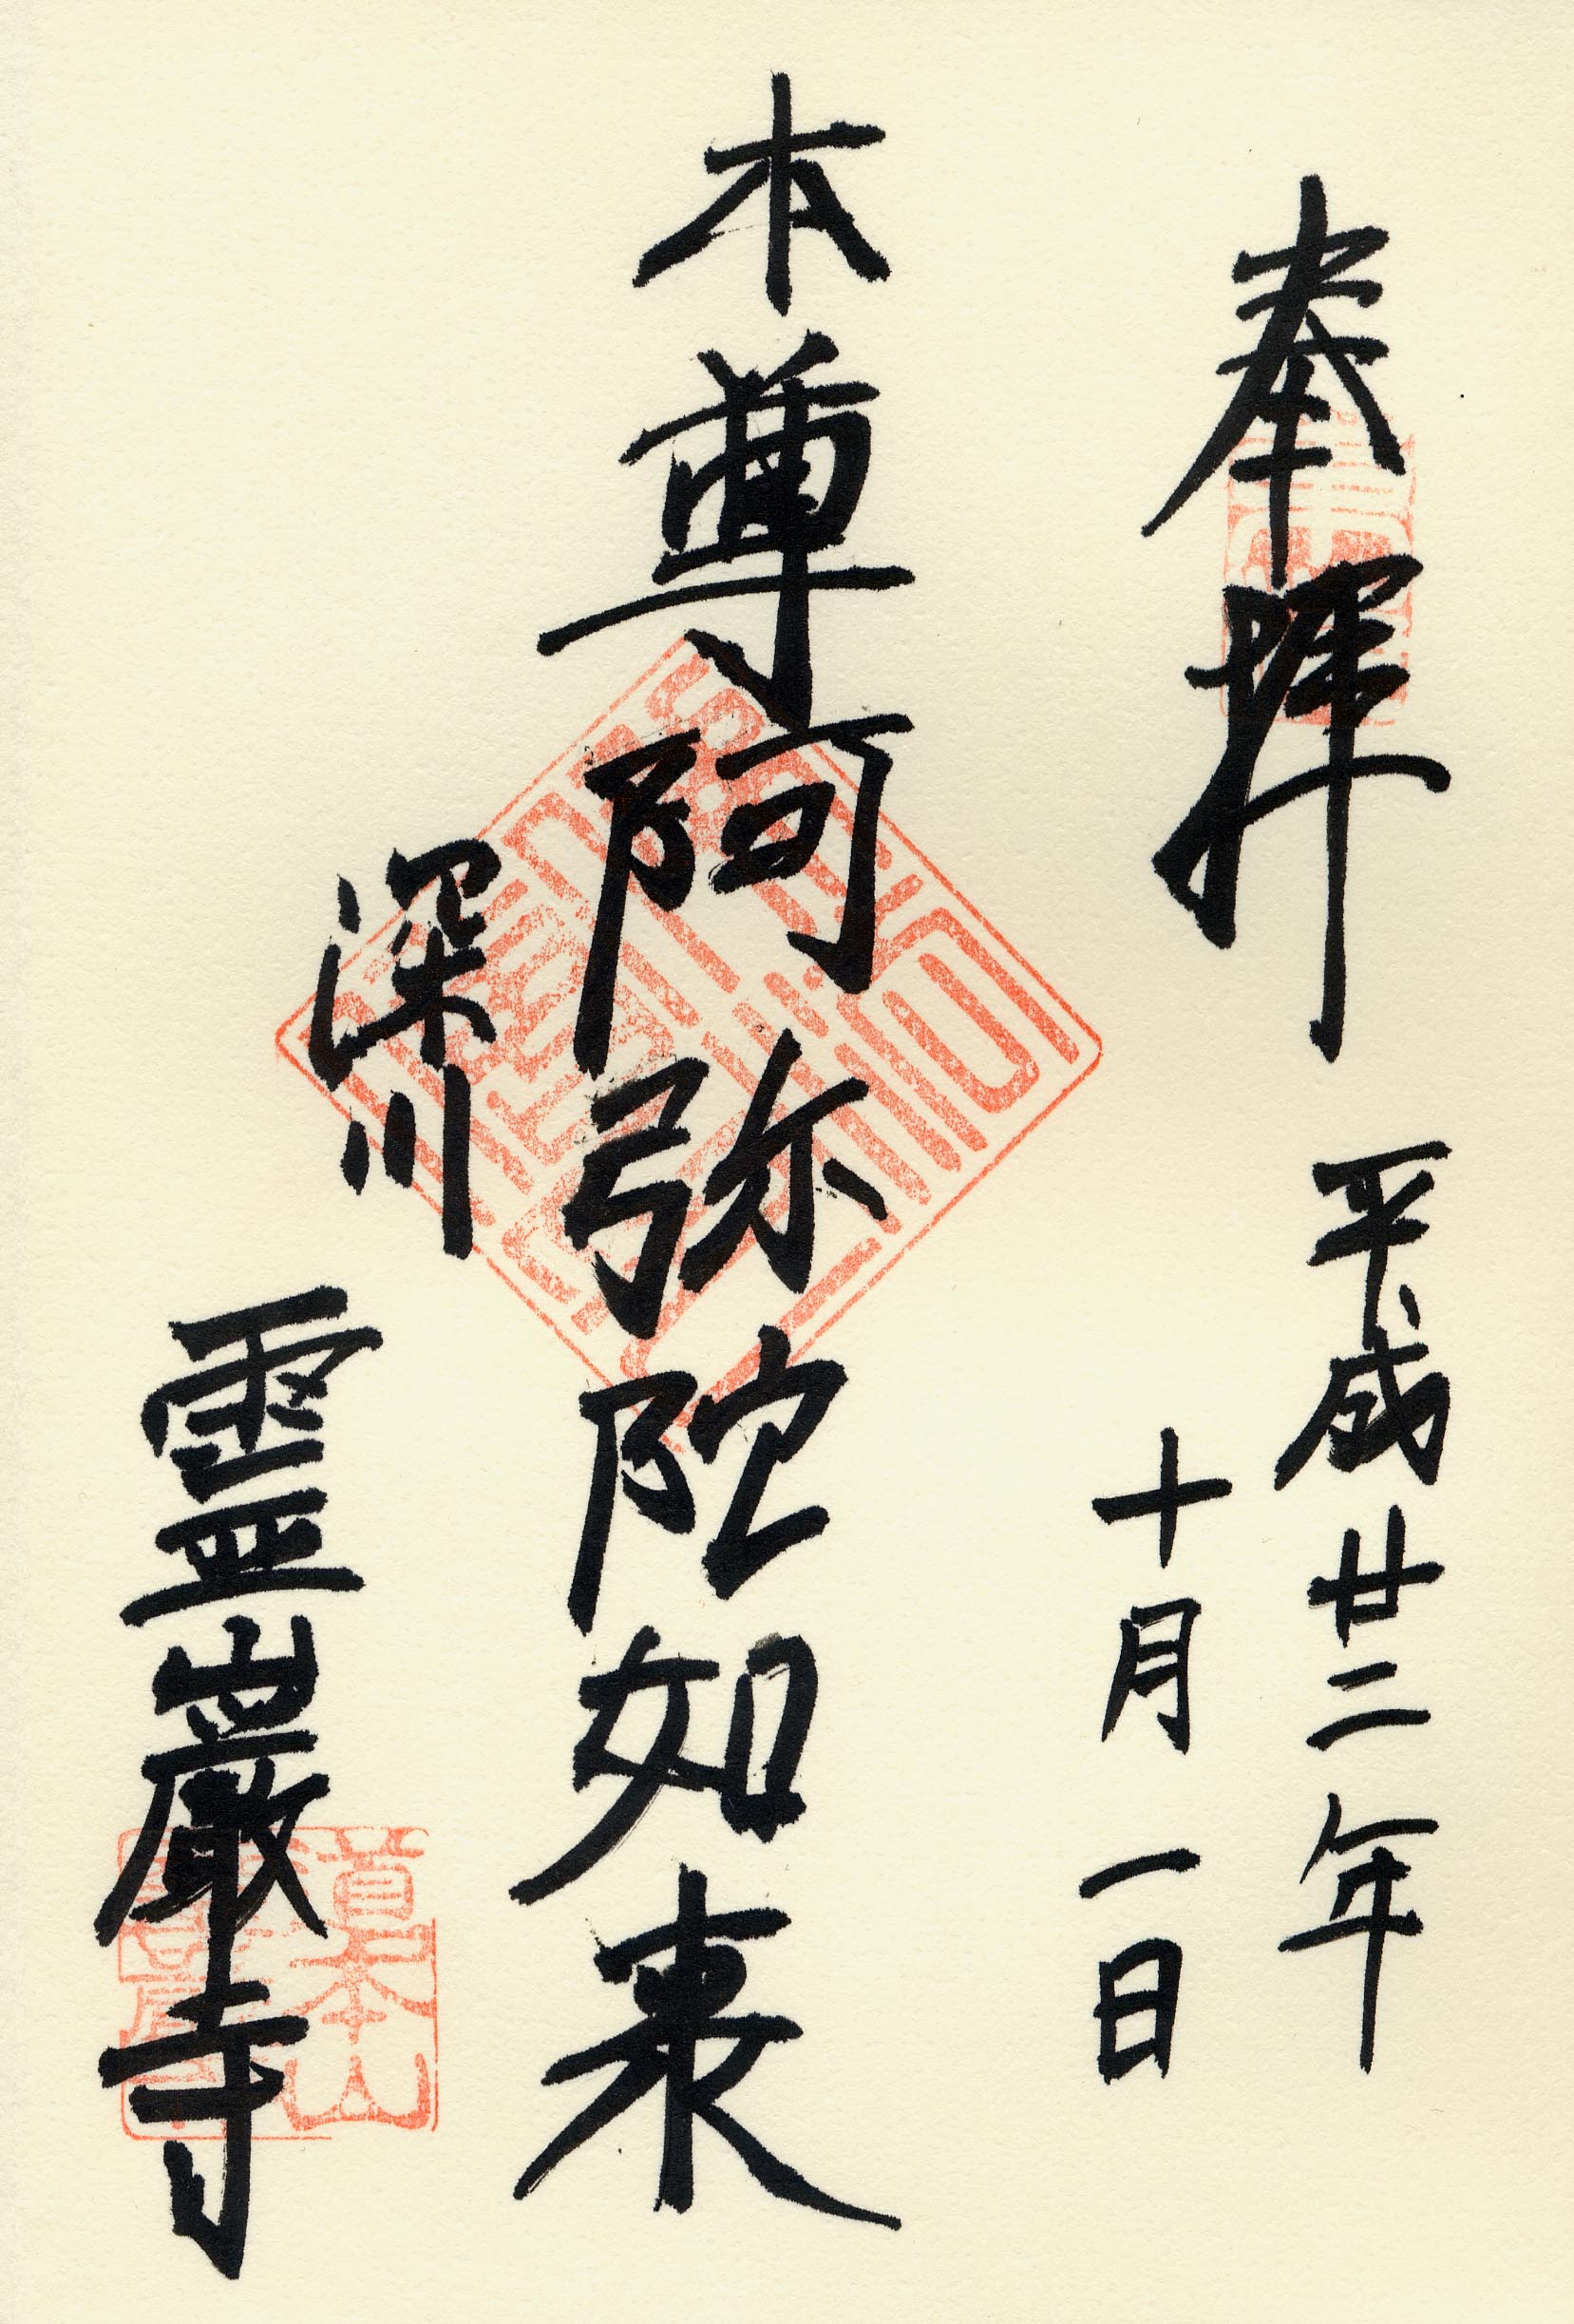 奉拝
平成廿二年
十月一日
本尊阿弥陀如来
深川
霊巌寺
道本山